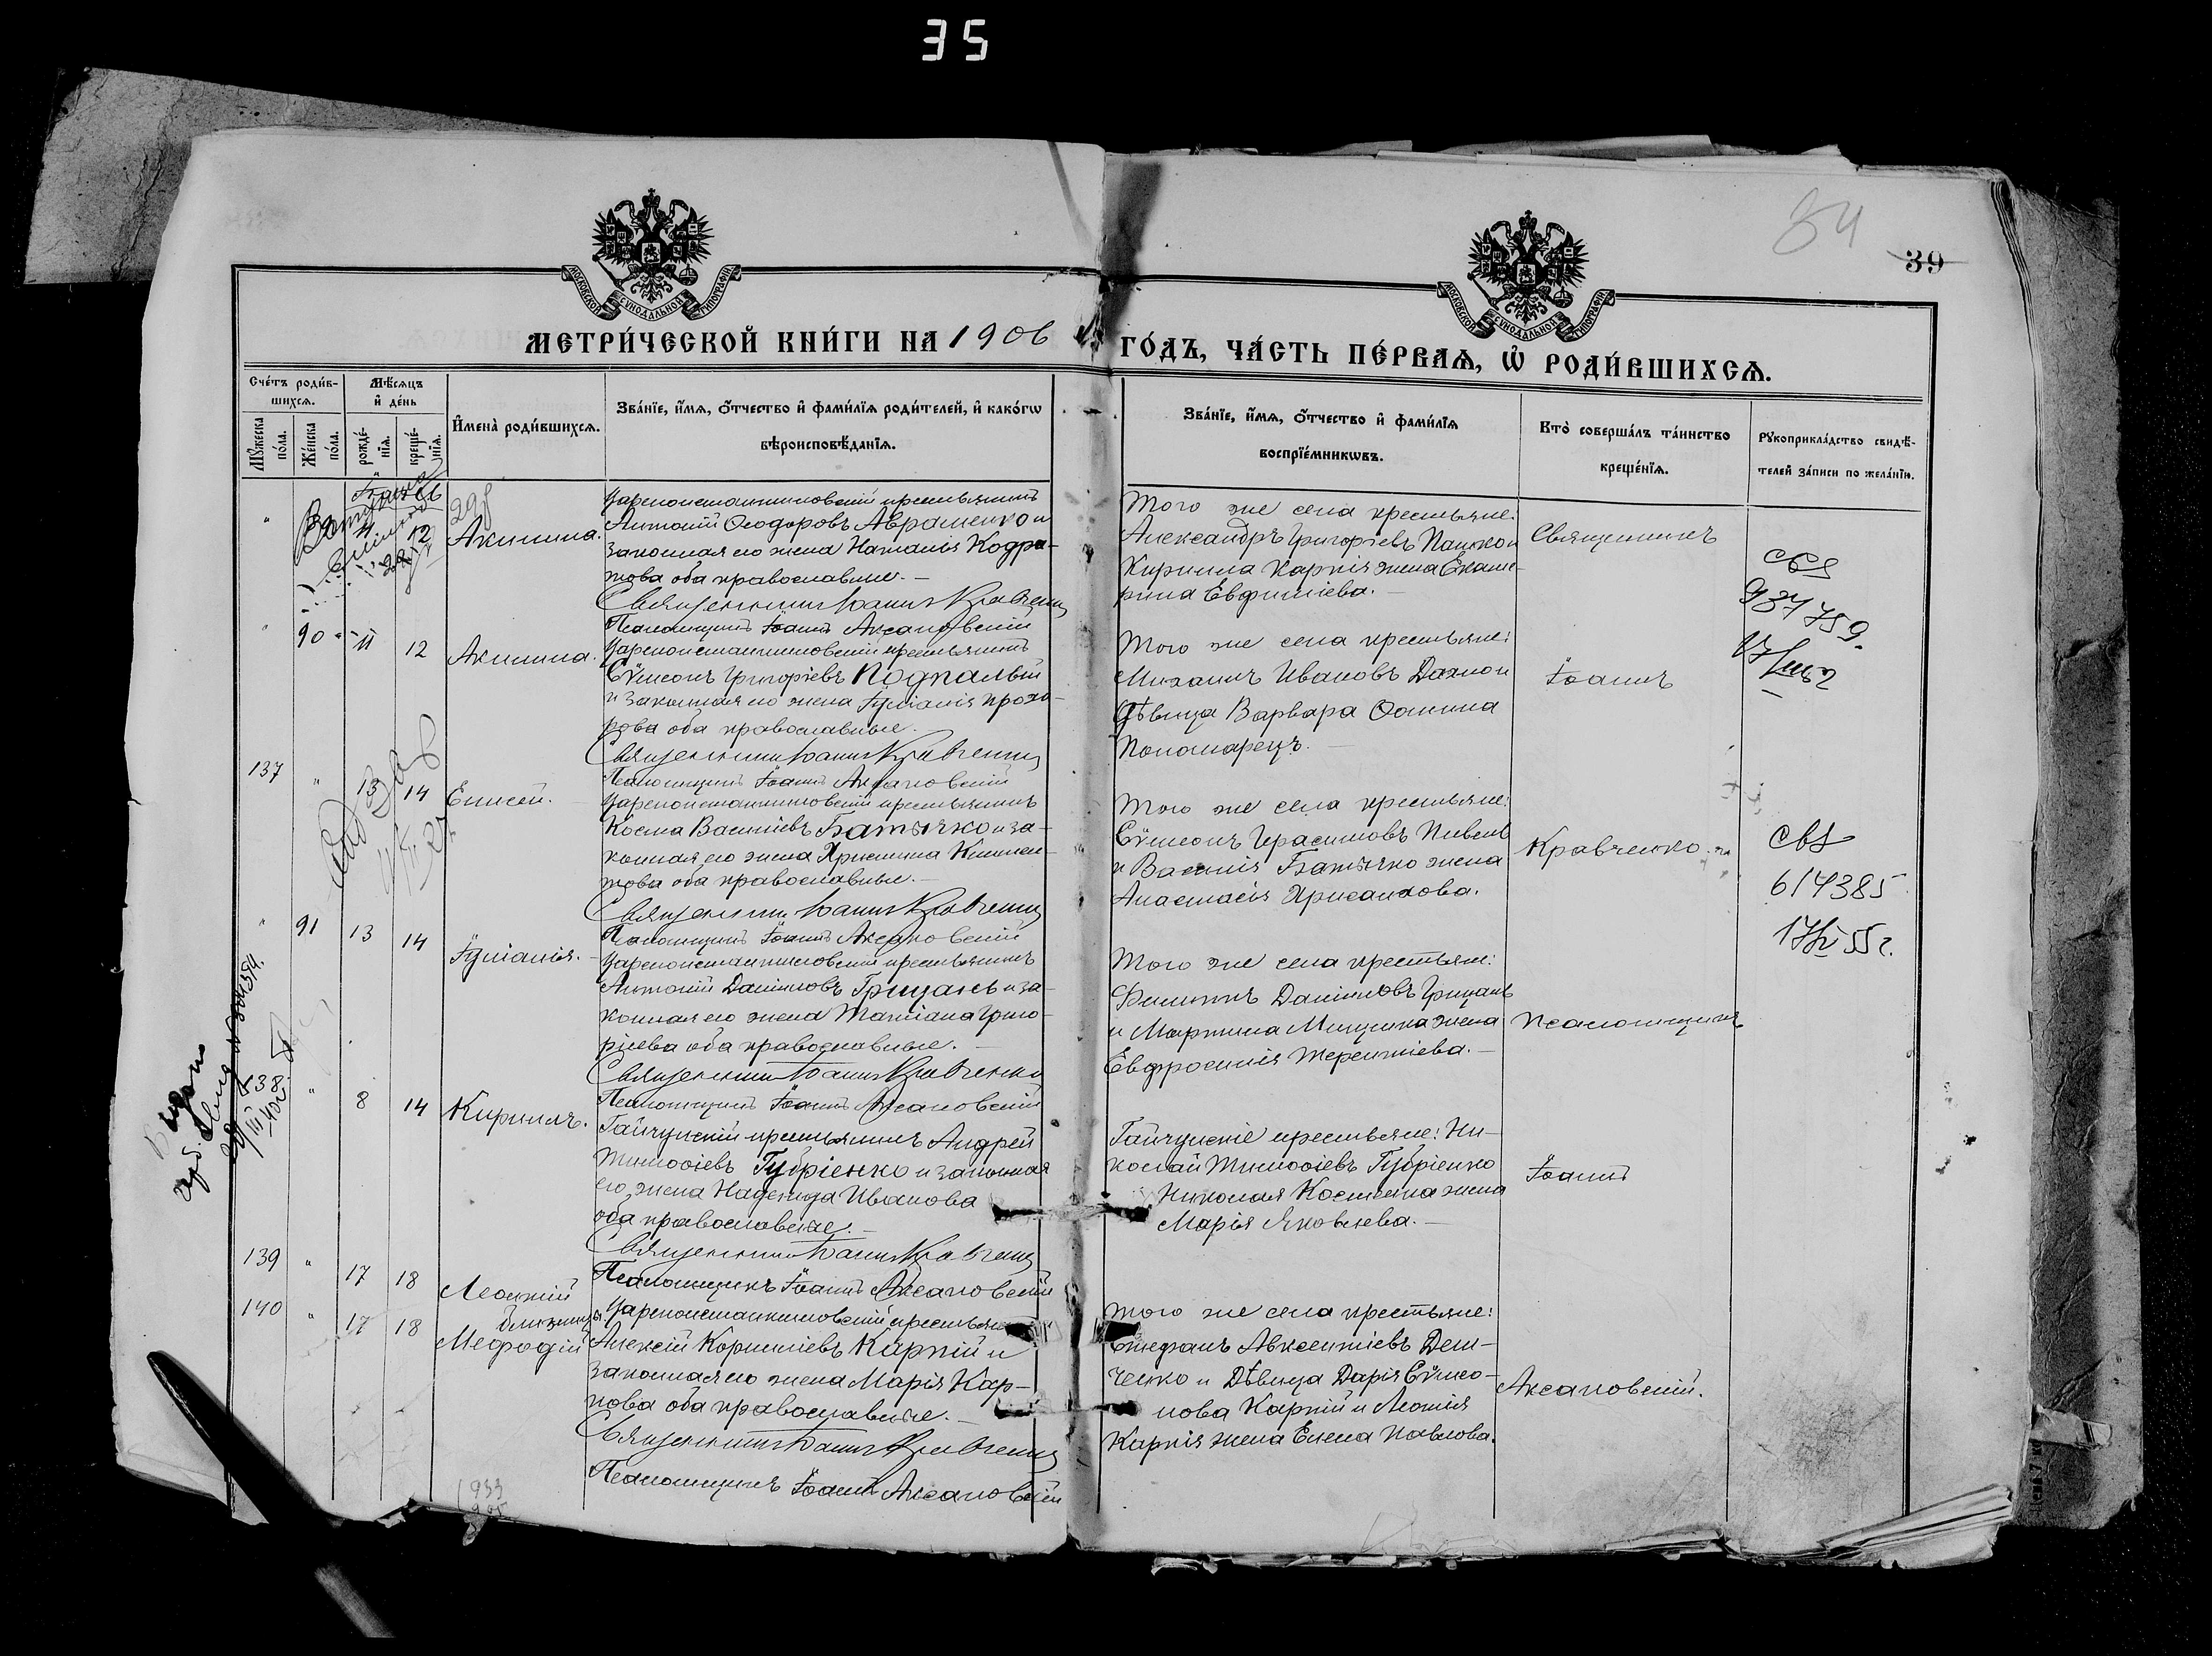 35
84
39
МОСКОВСКОЙ СѴНОДАЛЬНОЙ ТИПОГРАФІИ
МОСКОВСКОЙ СѴНОДАЛЬНОЙ ТИПОГРАФІИ
МЕТРИ́ЧЕСКОЙ КНИ́ГИ НА 1906
ГО́ДЪ, ЧА́СТЬ ПЕ́РВАѦ, Ѡ҆ РОДИ́ВШИХСѦ.
Сче́тъ роди́вшихсѧ.
Мꙋ́жеска по́ла.
Же́нска по́ла.
Мѣ́сѧцъ и҆ де́нь
рожде́нїѧ.
креще́нїѧ.
И҆мена̀ роди́вшихсѧ.
Зва́нїе, и҆́мѧ, ѻ҆́тчество и҆ фами́лїѧ роди́телей, и҆ како́гѡ
вѣроисповѣ́данїѧ.
Зва́нїе, и҆́мѧ, ѻ҆́тчество и҆ фами́лїѧ
воспрїе́мникѡвъ.
Кто̀ соверша́лъ та́инство
креще́нїѧ.
Рꙋкоприкла́дство свидѣ́-
телей за́писи по жела́нїю.
" 11 12 Акилина.
Цареконстантиновскій крестьянинъ
Антоній Ѳеодоровъ Авраменко и
законная его жена Наталія Кодра-
това оба православные.–
Священникъ Іоаннъ Кравченко
Псаломщикъ Іоаннъ Аксановскій
Того же села крестьяне:
Александръ Григоріевъ Панко и
Кирилла Карпія жена Екате-
рина Евфиміева.–
Священникъ
СВ
937759.
" 90 11 12 Акилина.
Цареконстантиновскій крестьянинъ
Сѵмеонъ Григоріевъ Подпалый
и законная его жена Іуліанія Прохо-
рова оба православные.
Священникъ Іоаннъ Кравченко
Псаломщикъ Іоаннъ Аксановскій
Того же села крестьяне:
Михаилъ Ивановъ Дахно и
дѣвица Варвара Ѳомина
Пономарецъ.–
Іоаннъ
137 " 13 14 Елисей.
Цареконстантиновскій крестьянинъ
Косма Василіевъ Батычко и за-
конная его жена Христина Климен-
това оба православные.–
Священникъ Іоаннъ Кравченко
Псаломщикъ Іоаннъ Аксановскій
Того же села крестьяне:
Сѵмеонъ Герасимовъ Пивень
и Василія Батычко жена
Анастасія Хрисанхова.
Кравченко
СВ
614385
" 91 13 14 Іуліанія.
Цареконстантиновскій крестьянинъ
Антоній Даніиловъ Грицань и за-
конная его жена Татіана Григо-
риева оба православные.–
Священникъ Іоаннъ Кравченко
Псаломщикъ Іоаннъ Аксановскій
Того же села крестьяне:
Филиппъ Даніиловъ Грицань
и Мартина Мищенка жена
Евфросинія Терентіева.–
Псаломщикъ
138 " 8 14 Кириллъ.
Гайчулскій крестьянинъ Андрей
Тимоѳіевъ Губріенко и законная
его жена Надежда Иванова
оба православные.–
Священникъ Іоаннъ Кравченко
Псаломщикъ Іоаннъ Аксановскій
Гайчулскіе крестьяне: Ни-
колай Тимоѳіевъ Губріенко
Николая Костенка жена
Марія Яковлева.–
Іоаннъ
139 " 17 18 Леонтій
близнецы
140 " 17 18 Меѳодій
Цареконстантиновскій крестьянинъ
Алексій Корниліевъ Карпій и
законная его жена Марія Кар-
пова оба православные.–
Священникъ Іоаннъ Кравченко
Псаломщикъ Іоаннъ Аксановскій
Того же села крестьяне:
Стефанъ Авксентіевъ Дем-
ченко и дѣвица Дарія Сѵмео-
нова Карпій и Леонтія
Карпія жена Елена Павлова.
Аксановскій.
933